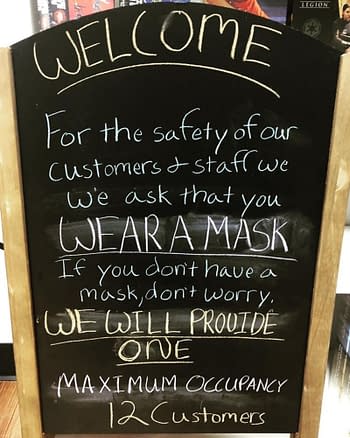 LEGION
WELCOME
For the safety of our
customers & staff we
we ask that you
WEAR A MASK
If you don't have a
mask, don't worry.
WE WILL PROVIDE
ONE
MAXIMUM OCCUPANCY
12 Customers